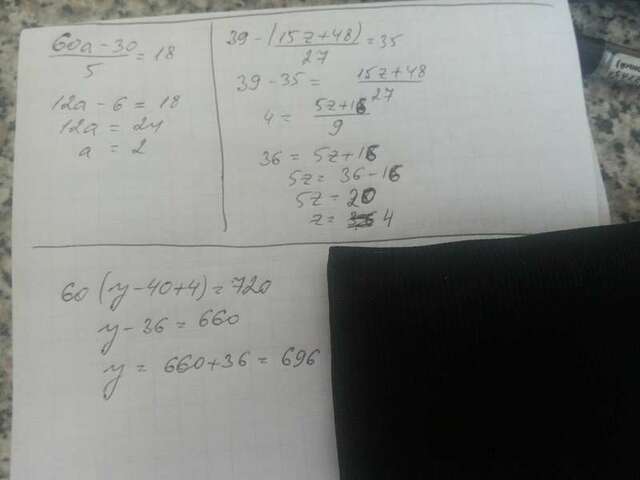 60a - 30
5
= 18
12a - 6 = 18
12a = 24
a = 2
39 - (15z + 48)
27
= 35
39 - 35 = 15z + 48
27
4 = 5z + 16
9
36 = 5z + 16
5z = 36 - 16
5z = 20
z = 4
60 (y - 40 + 4) = 720
y - 36 = 660
y = 660 + 36 = 696